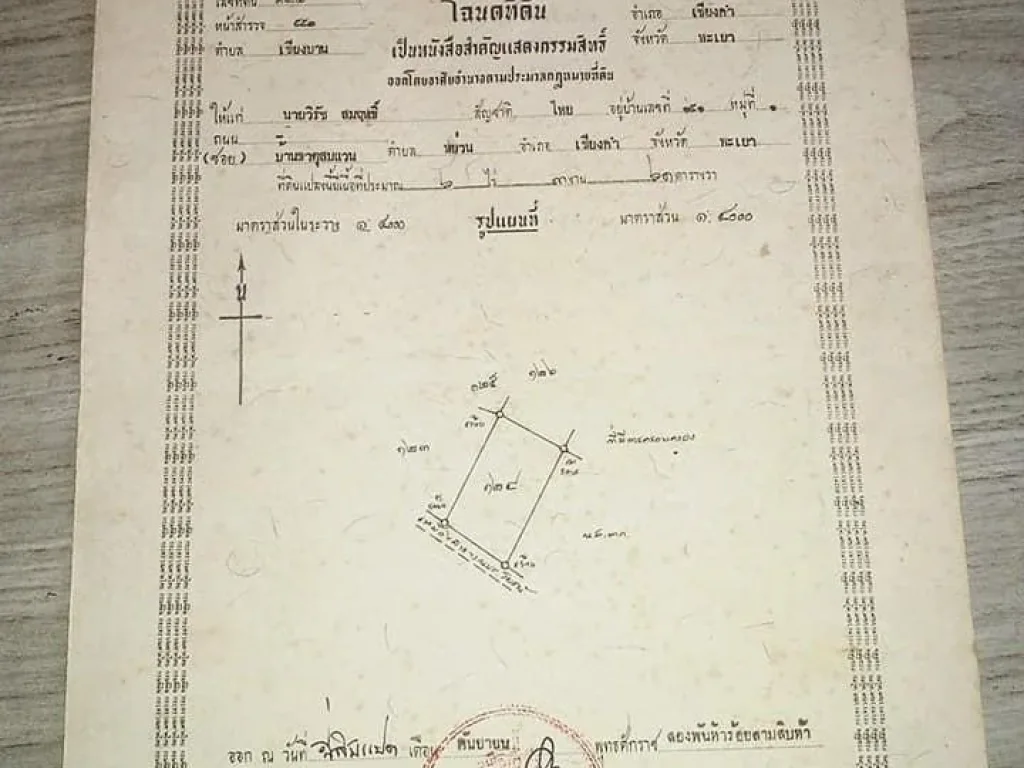 โฉนดที่ดิน อำเภอ เชียงคำ
หน้าสำรวจ ๔๕๑ จังหวัด พะเยา
ตำบล เชียงบาน เป็นหนังสือสำคัญแสดงกรรมสิทธิ์
ออกโดยอาศัยอำนาจตามประมวลกฎหมายที่ดิน
ให้แก่ นายวิรัช สมฤทธิ์ สัญชาติ ไทย อยู่บ้านเลขที่ ๑๔๑ หมู่ที่ ๑
ถนน
(ซอย) บ้านธาตุสบแวน ตำบล หย่วน อำเภอ เชียงคำ จังหวัด พะเยา
ที่ดินแปลงนี้มีเนื้อที่ประมาณ ๖ ไร่ งาน ตารางวา
มาตราส่วนในระวาง ๑: ๔๐๐๐ รูปแผนที่ มาตราส่วน ๑: ๔๐๐๐
น
๑๒๕ ๑๒๖
๑๒๓
ที่มีการครอบครอง
๑๒๔
น.ส.๓ก.
ออก ณ วันที่ ยี่สิบแปด เดือน กันยายน พุทธศักราช สองพันห้าร้อยสามสิบห้า